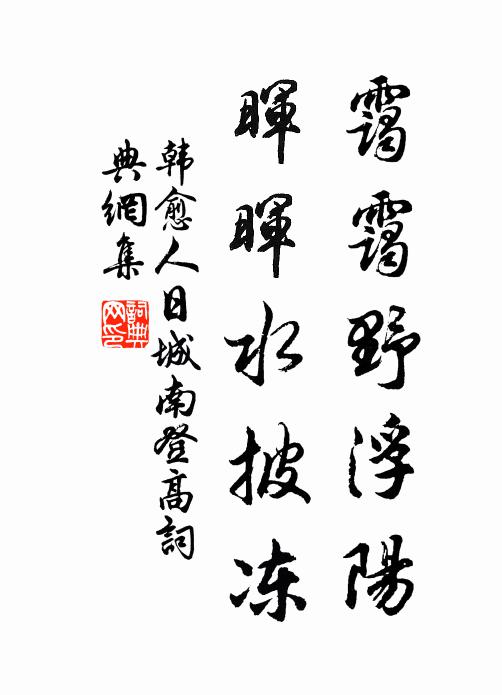 靄靄野浮陽
暉暉水披冻
韩愈人日城南登高詞
典網集
詞典网印